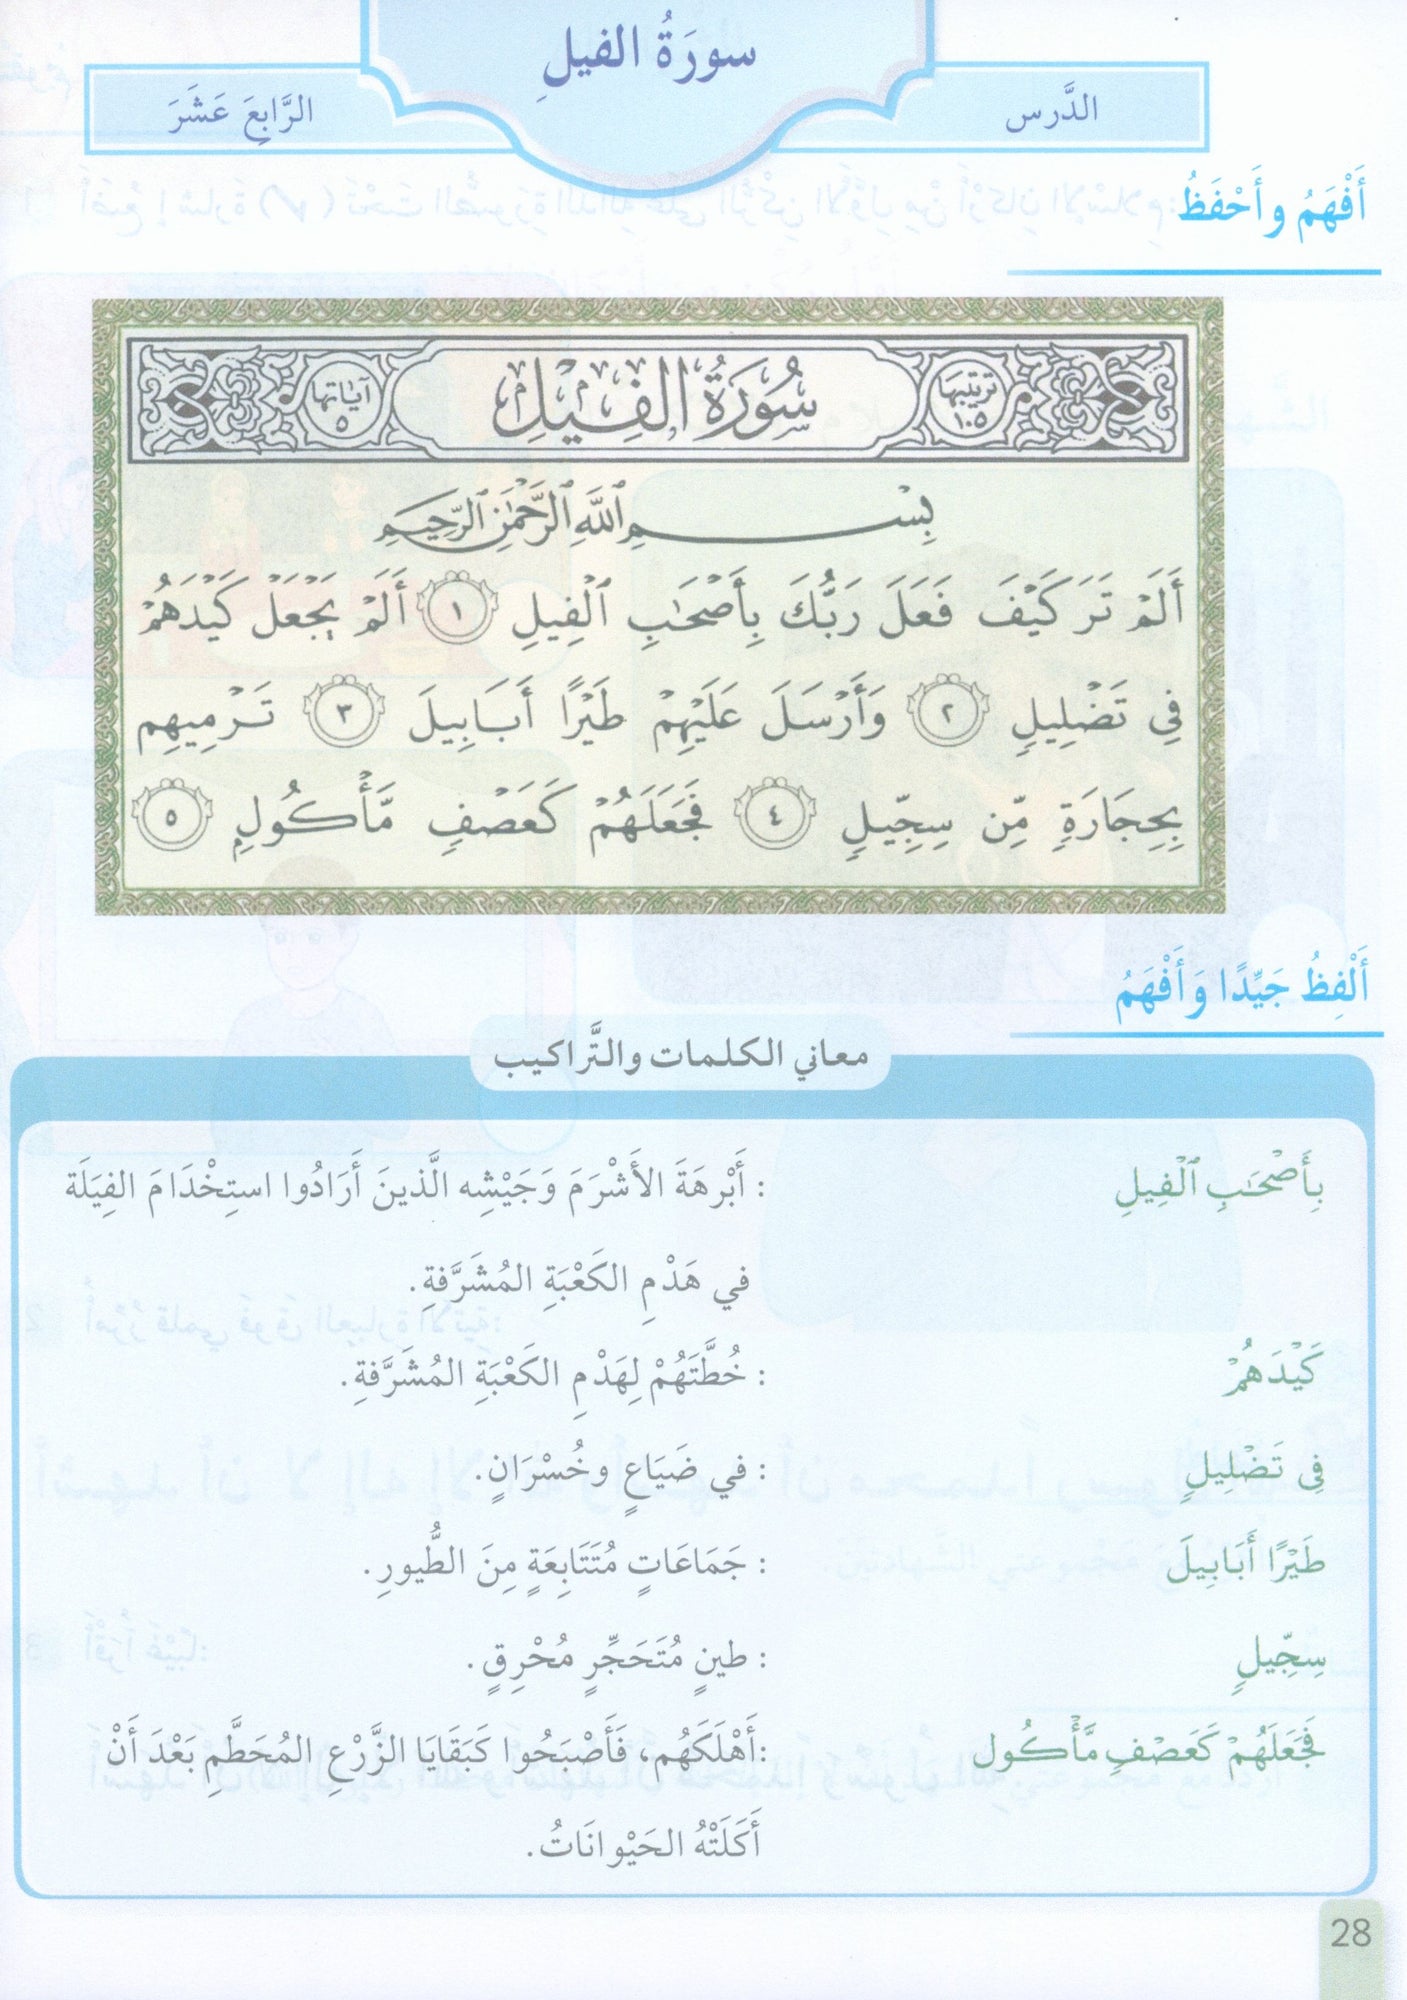 سورَةُ الفيلِ
الدَّرس
الرَّابِعَ عَشَرَ
أَفْهَمُ وأَحْفَظُ
ترتيبها ١٠٥
سُورَةُ الفِيلِ
آياتها ٥
بِسْمِ ٱللَّهِ ٱلرَّحْمَٰنِ ٱلرَّحِيمِ
أَلَمْ تَرَ كَيْفَ فَعَلَ رَبُّكَ بِأَصْحَٰبِ ٱلْفِيلِ ١ أَلَمْ يَجْعَلْ كَيْدَهُمْ
فِي تَضْلِيلٍ ٢ وَأَرْسَلَ عَلَيْهِمْ طَيْرًا أَبَابِيلَ ٣ تَرْمِيهِم
بِحِجَارَةٍ مِّن سِجِّيلٍ ٤ فَجَعَلَهُمْ كَعَصْفٍ مَّأْكُولٍ ٥
أَلْفِظُ جَيِّدًا وَأَفْهَمُ
معاني الكلمات والتَّراكيب
بِأَصْحَٰبِ ٱلْفِيلِ : أَبْرهَةَ الأَشْرَمَ وَجَيْشِه الَّذينَ أَرَادُوا استِخْدَامَ الفِيَلَة
في هَدْمِ الكَعْبَةِ المُشَرَّفةِ.
كَيْدَهُمْ : خُطَّتَهُمْ لِهَدْمِ الكَعْبَةِ المُشَرَّفةِ.
فِى تَضْلِيلٍ : في ضَيَاعٍ وخُسْرَانٍ.
طَيْرًا أَبَابِيلَ : جَمَاعَاتٍ مُتَتَابِعَةٍ مِنَ الطُّيورِ.
سِجِّيلٍ : طينٍ مُتَحَجِّرٍ مُحْرِقٍ.
فَجَعَلَهُمْ كَعَصْفٍ مَّأْكُول :أَهْلَكَهُم، فَأَصْبَحُوا كَبَقَايَا الزَّرْعِ المُحَطَّمِ بَعْدَ أَنْ
أَكَلَتْهُ الحَيْوانَاتُ.
28